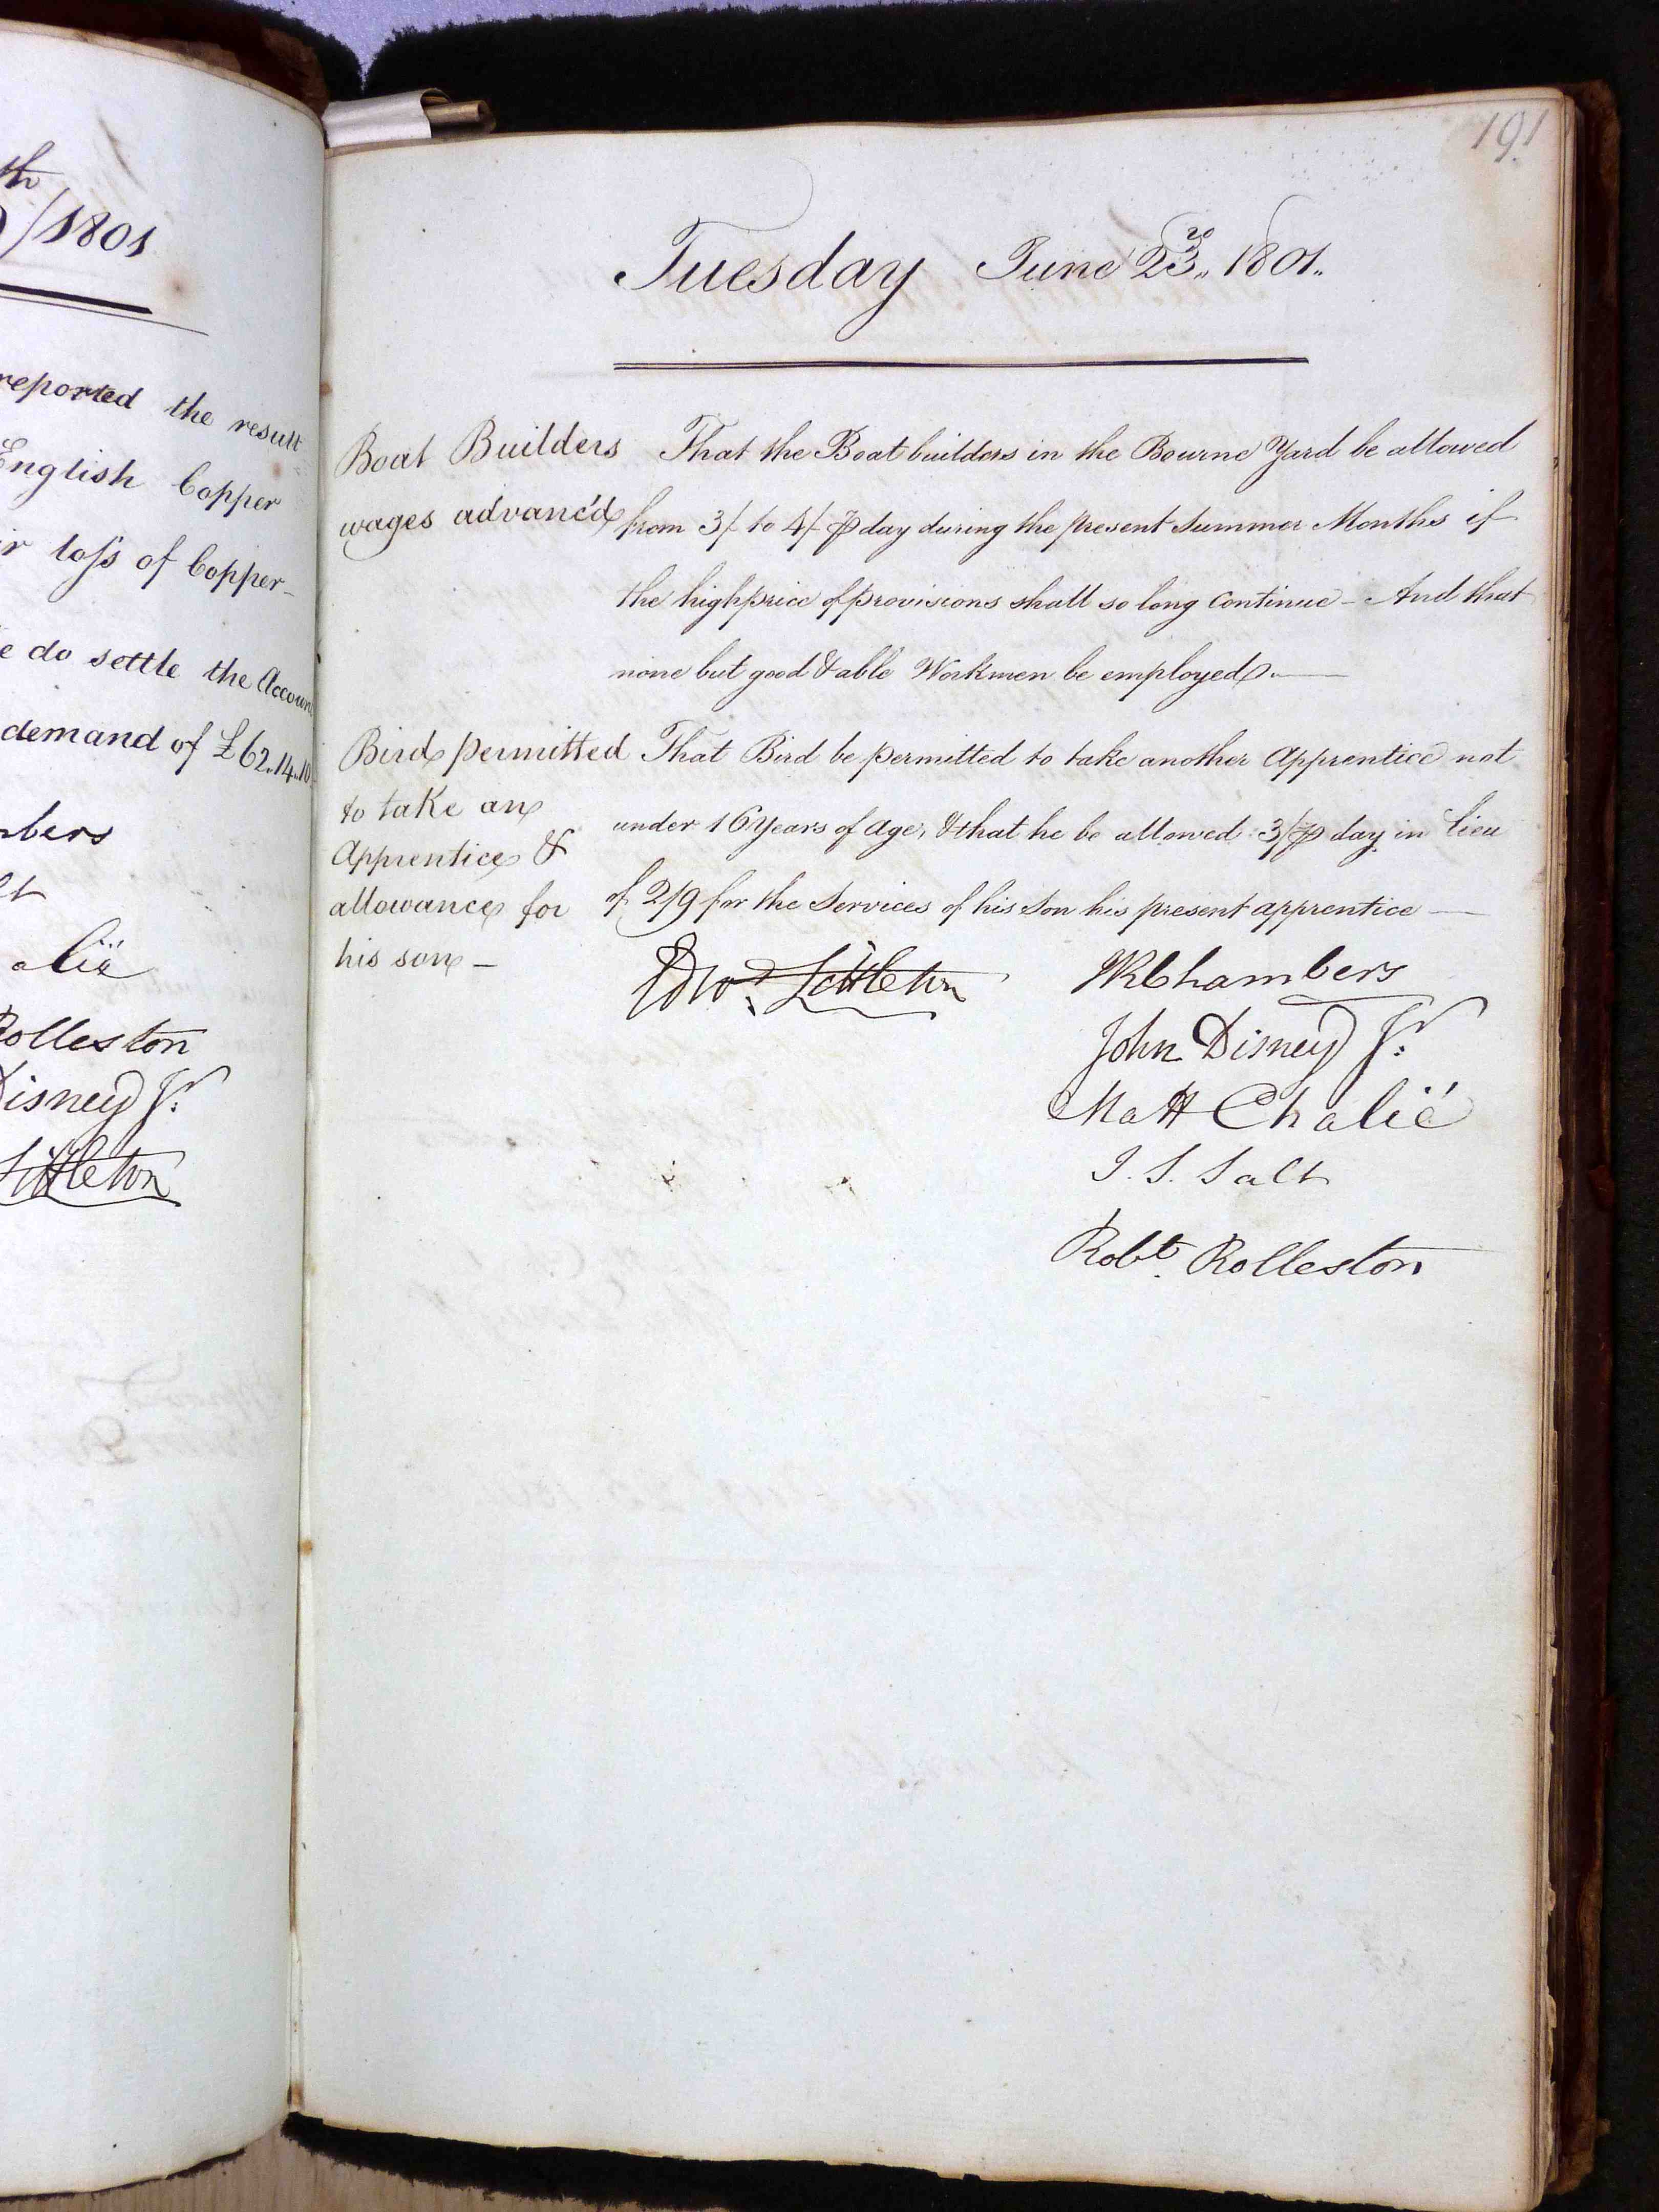 th
/1801
reported the result
English Copper
loſs of Copper
do settle the Account
demand of £62.14.10
Rolleston
Disney Jr.
Littleton
191
Tuesday June 23.rd 1801.
Boat Builders
wages advanc'd
That the Boat builders in the Bourne Yard be allowed
from 3/- to 4/- ⅌ day during the present Summer Months if
the high price of provisions shall so long Continue - And that
none but good & able Workmen be employed.
Bird permitted
to take an
Apprentice &
allowance for
his son -
That Bird be permitted to take another Apprentice not
under 16 Years of Age, & that he be allowed 3/ ⅌ day in lieu
of 2/9 for the Services of his Son his present apprentice
Edwd. Littleton
WR Chambers
John Disney Jr.
Matt Chalié
J. S. Salt
Robt. Rolleston